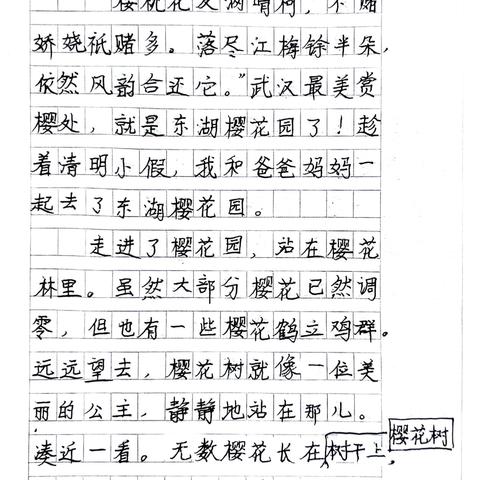 樱桃花发满晴柯，不赌
娇娆祇赌多。落尽江梅馀半朵，
依然风韵合还它。”武汉最美赏
樱处，就是东湖樱花园了！趁
着清明小假，我和爸爸妈妈一
起去了东湖樱花园。
走进了樱花园，站在樱花
林里。虽然大部分樱花已然调
零，但也有一些樱花鹤立鸡群。
远远望去，樱花树就像一位美
丽的公主，静静地站在那儿。
凑近一看。无数樱花长在树干上，
樱花树